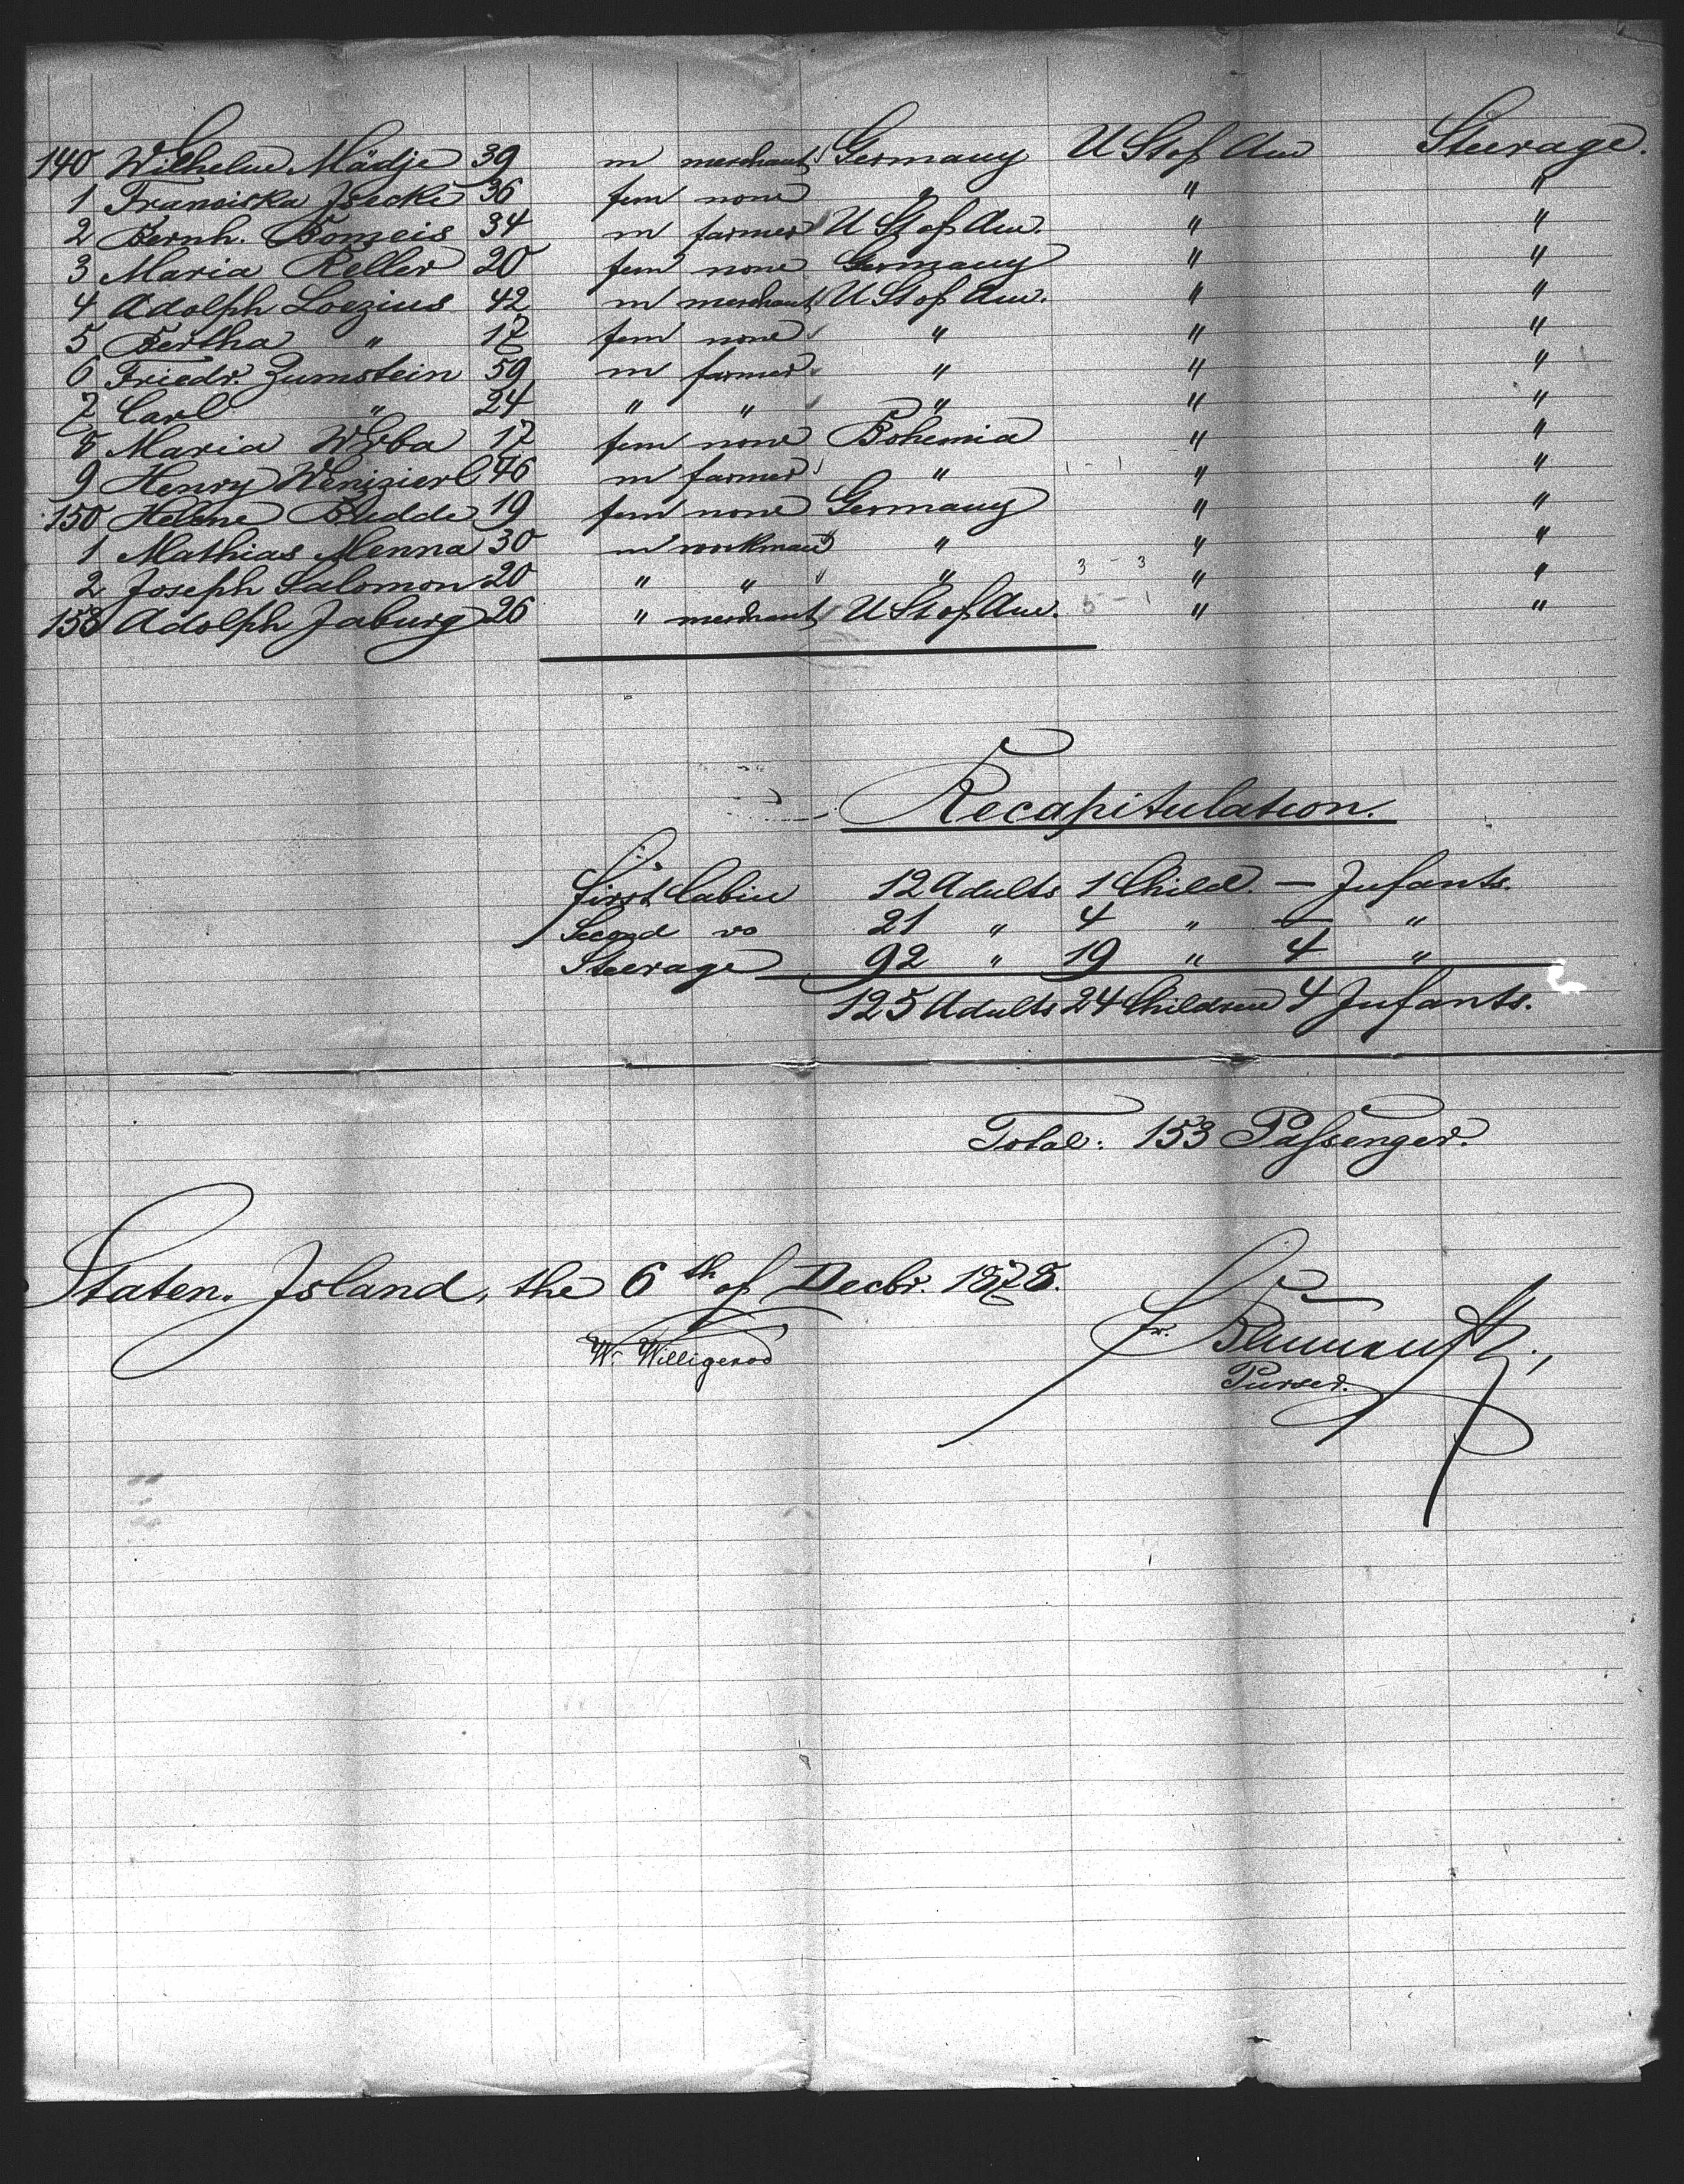 140 Wilhelm Mädje 39 m merchant Germany U St of Am Steerage.
1 Franciska Jsecke 36 fem none " " "
2 Bernh. Bomeis 34 m farmer U St of Am. " "
3 Maria Keller 20 fem none Germany " "
4 Adolph Loezius 42 m merchant U St of Am. " "
5 Bertha " 17 fem none " " "
6 Friedr. Zumstein 59 m farmer " " "
7 Carl " 24 " " " " "
8 Maria Wrba 17 fem none Bohemia " "
9 Henry Wenizierl 46 m farmer " 1 - 1 " "
150 Helene Budde 19 fem none Germany " "
1 Mathias Menna 30 m workman " " "
2 Joseph Salomon 20 " " " 3 - 3 " "
153 Adolph Jaburg 26 " merchant U St of Am. 5 - 1 " "
Recapitulation.
First Cabin 12 Adults 1 Child. — Infants.
Second do 21 " 4 " — "
Steerage 92 " 19 " 4 "
125 Adults 24 Children 4 Infants.
Total: 153 Passenger.
Staten. Island, the 6th of Decbr. 1878.
W. Willigerod
Purser.